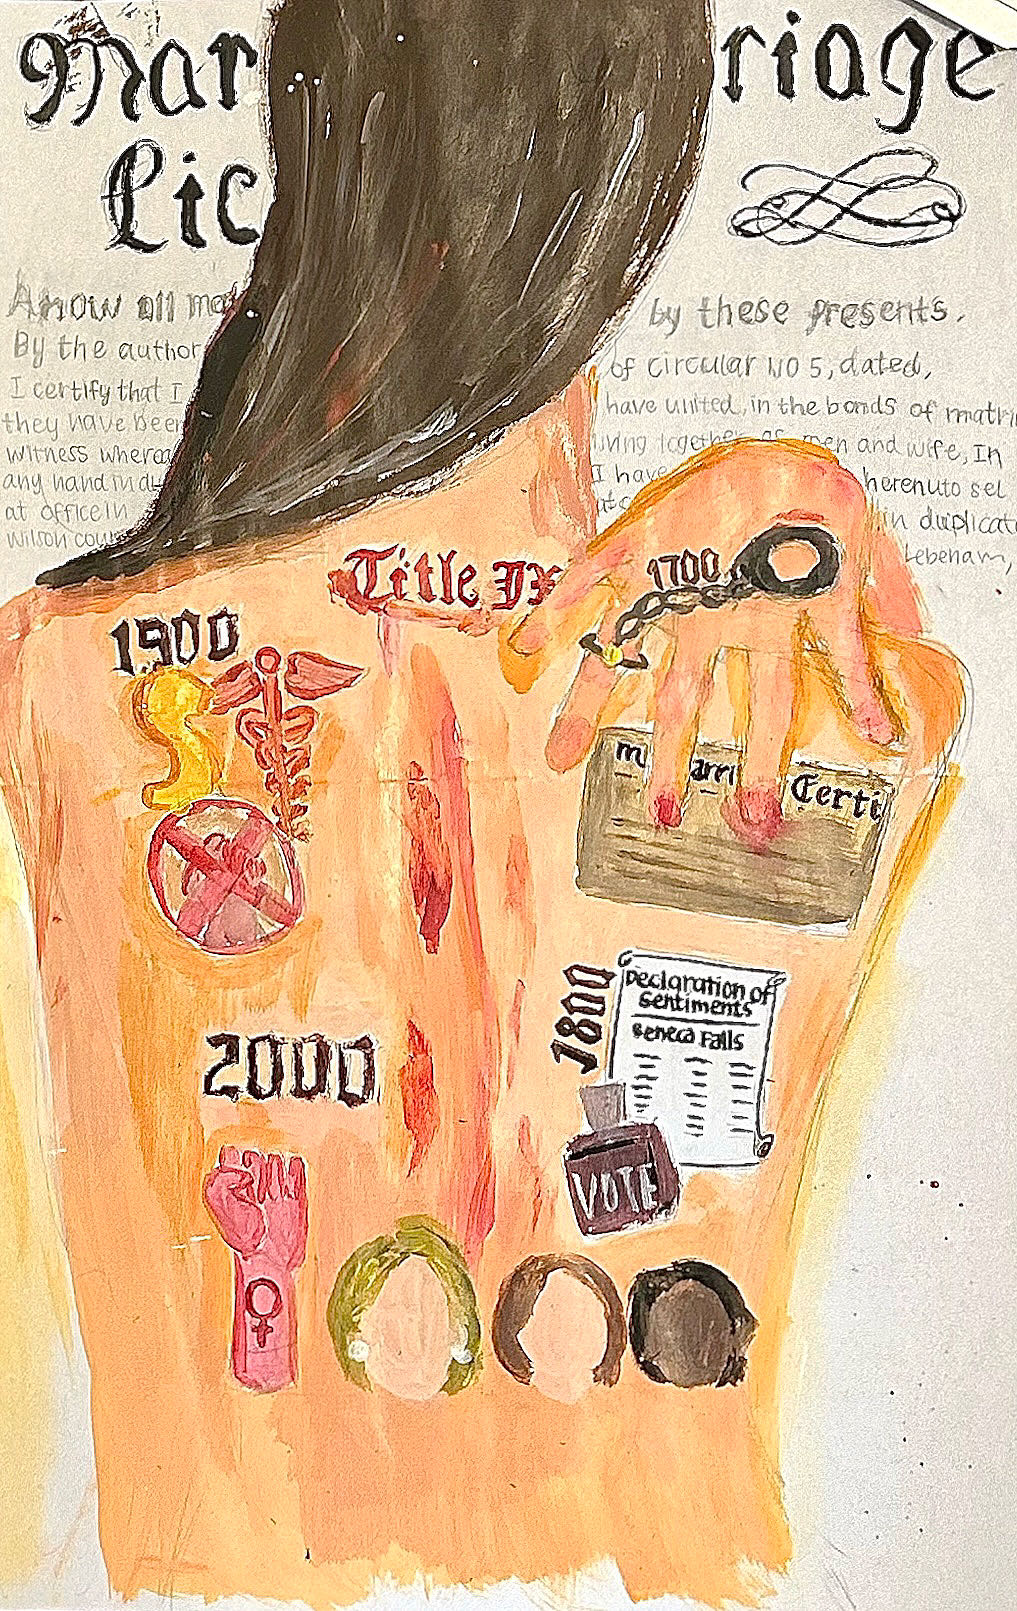 Mar riage
Lic
Know all me by these presents.
By the author of circular NO 5, dated,
I certify that I have united, in the bonds of matri
they have Been living together as men and wife, In
witness wherea I have herenuto sel
any hand in du in duplicate
at office in
Wilson coun Lebenam,
Title IX
1700
1900
m arri Certi
1800
Declaration of
Sentiments
Seneca Falls
2000
VOTE